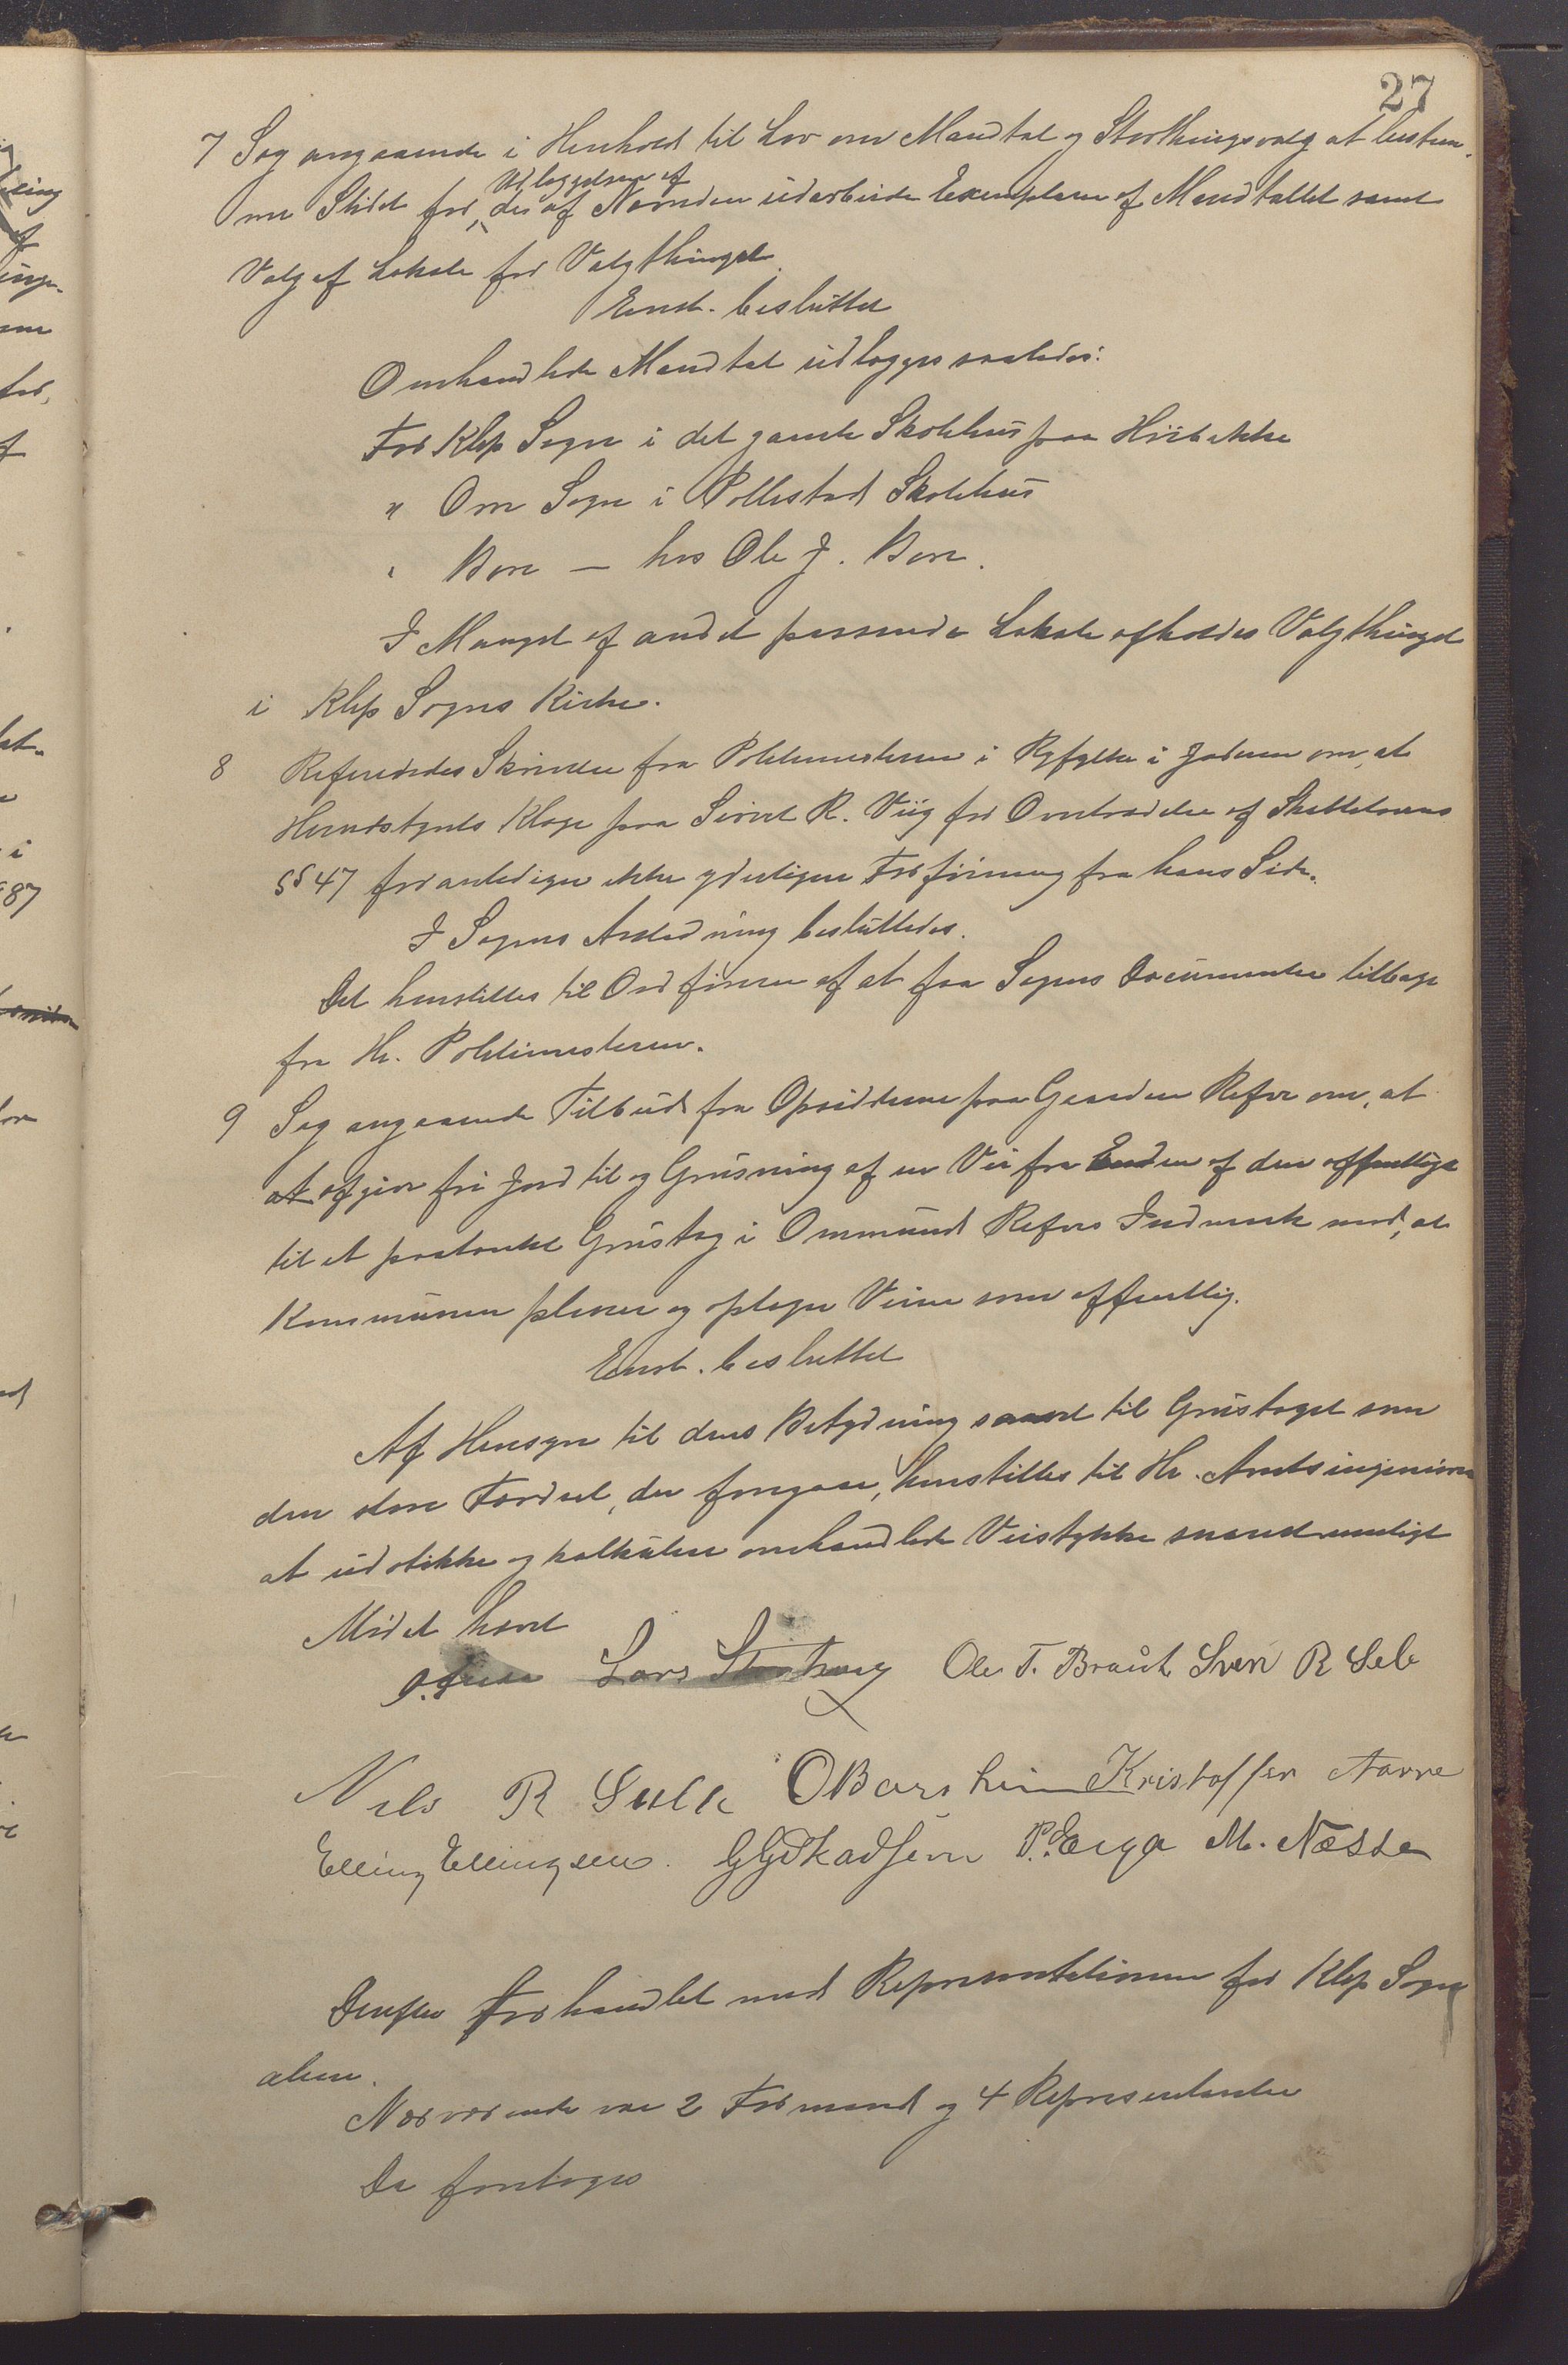 27
7 Sag angaaende i Henhold til Lov om Mandtal og Storthingsvalg at bestem-
me Stedet for Udlæggelsen af de af Nævnden udarbeide Exemplarer af Mandtallet samt
Valg af Lokale for Valgthinget.
Enst. besluttet
Omhandlede Mandtal udlægges saaledes:
For Klep Sogn i det gamle Skolehus paa
" Orre Sogn i Pollestad Skolehus
" Bore — hos Ole J. Bore.
I Mangel af andet passende Lokale afholdes Valgthinget
i Klep Sogns Kirke.
8 Refereredes Skrivelse fra Politimesteren i Ryfylke i Jæderen om, at
Herredstyrets Klage paa Sivert R. Viig for Overtrædelse af
§§ 47 foranlediger ikke yderligere Forføining fra hans Side.
I Sagens Anledning besluttedes.
Det henstilles til Ordføreren af at faa Sagens Documenter tilbage
fra Hr. Politimesteren.
9 Sag angaaende Tilbud fra Opsidderne paa Gaarden Refve om, at
at afgive fri Jord til og Grusning af en Vei fra Enden af den offentlige
til et paatænkt Grustag i Ommund Refves Indmark mod, at
Kommunen planer og optager Veien som offentlig.
Enst. besluttet
Af Hensyn til dens Betydning saavel til Grustaget som
den store Færdsel, der foregaar, henstilles til Hr. Amtsingeniøren
at udstikke og kalkulere omhandlede Veistykke snarest muligt
Mødet hævet
Lars Storhaug Ole T. Braut Sven R Sele
Nels R Sele O Borsheim Kristoffer Aavre
Elling Ellingsen. G G Skadsem P. Erga M. Næsse
Derefter forhandlet med Repræsentationen for Klep Sogn
alene.
Nærværende var 2 Formænd og 4 Repræsentanter
Da foretoges